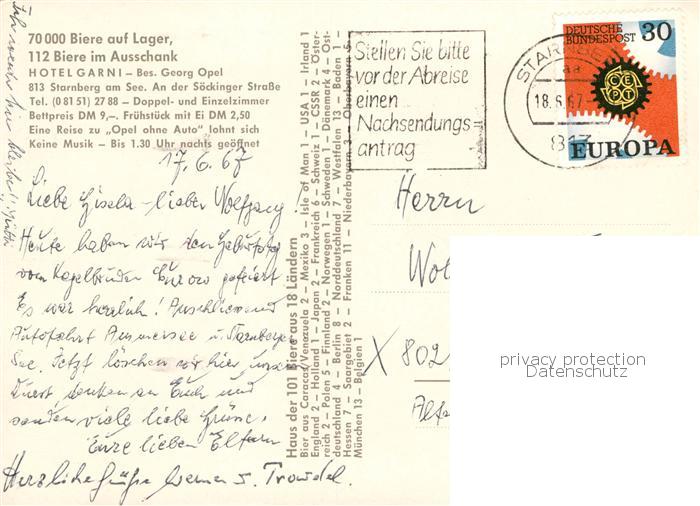 70 000 Biere auf Lager,
112 Biere im Ausschank
HOTEL GARNI – Bes. Georg Opel
813 Starnberg am See. An der Söckinger Straße
Tel. (0 81 51) 27 88 – Doppel- und Einzelzimmer
Bettpreis DM 9,–. Frühstück mit Ei DM 2,50
Eine Reise zu „Opel ohne Auto" lohnt sich
Keine Musik – Bis 1.30 Uhr nachts geöffnet
17.6.67
Liebe Gisela – lieber Wolfgang!
Heute haben wir den Geburtstag
vom gefeiert
Es war herrlich! Anschliessend
Autofahrt Ammersee u. Starnberger
See. Jetzt löschen wir hier unseren
Durst denken an Euch und
senden viele liebe Grüsse.
Eure lieben Eltern
Herzliche Grüße Werner u. Traudel.
Haus der 101 Biere aus 18 Ländern
Bier aus Caracas/Venezuela 2 – Mexiko 3 – Isle of Man 1 – USA 1 – Irland 1
England 2 – Holland 1 – Japan 2 – Frankreich 6 – Schweiz 1 – CSSR 2 – Öster-
reich 2 – Polen 5 – Finnland 2 – Norwegen 1 – Schweden 1 – Dänemark 4 – Ost-
deutschland 4 – Berlin 8 – Norddeutschland 7 – Westfalen 13 – Baden 1 –
Hessen 7 – Saargebiet 2 – Franken 11 – Niederbayern 3 – Oberbayern 5
München 13 – Belgien 1
Stellen Sie bitte
vor der Abreise
einen
Nachsendungs-
antrag
STARNBERG
aa
18.6.67
813
DEUTSCHE
BUNDESPOST 30
CEPT
EUROPA
Herrn
Wol
X 802
privacy protection
Datenschutz